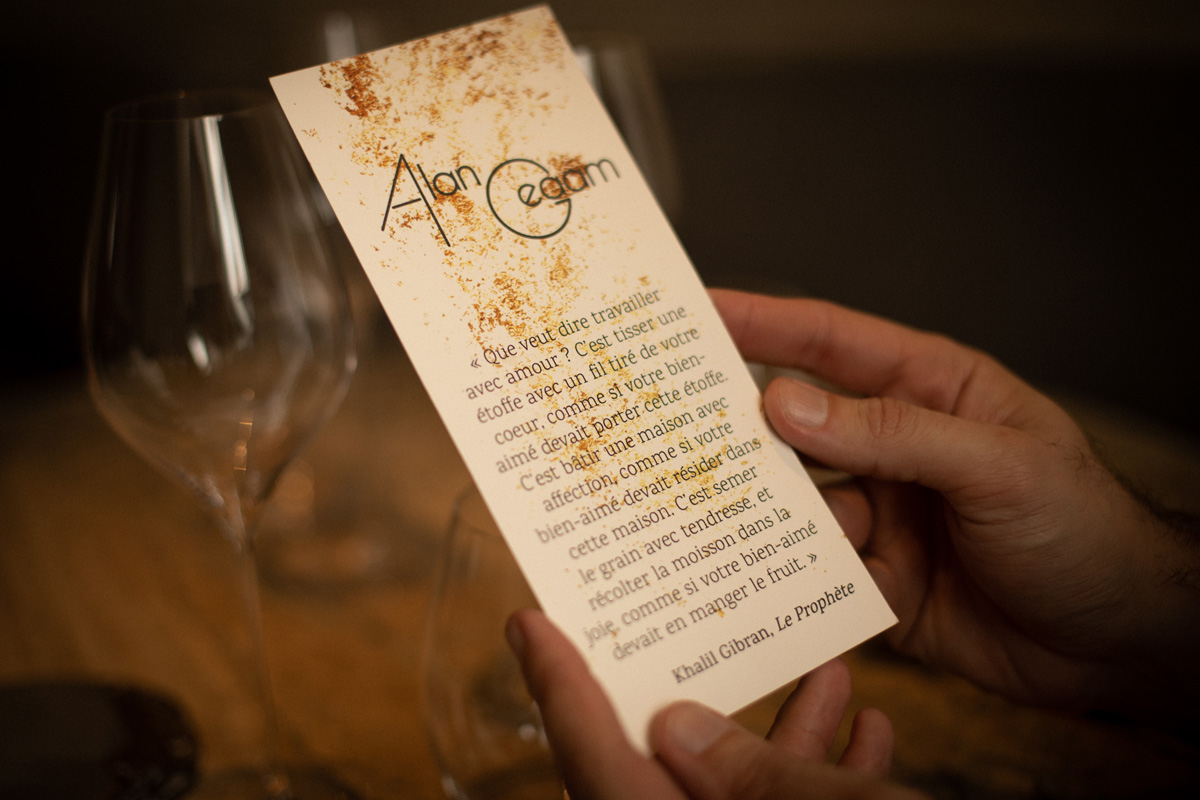 Alan Gegam
« Que veut dire travailler
avec amour ? C'est tisser une
étoffe avec un fil tiré de votre
coeur, comme si votre bien-
aimé devait porter cette étoffe.
C'est bâtir une maison avec
affection, comme si votre
bien-aimé devait résider dans
cette maison. C'est semer
le grain avec tendresse, et
récolter la moisson dans la
joie, comme si votre bien-aimé
devait en manger le fruit. »
Khalil Gibran, Le Prophète